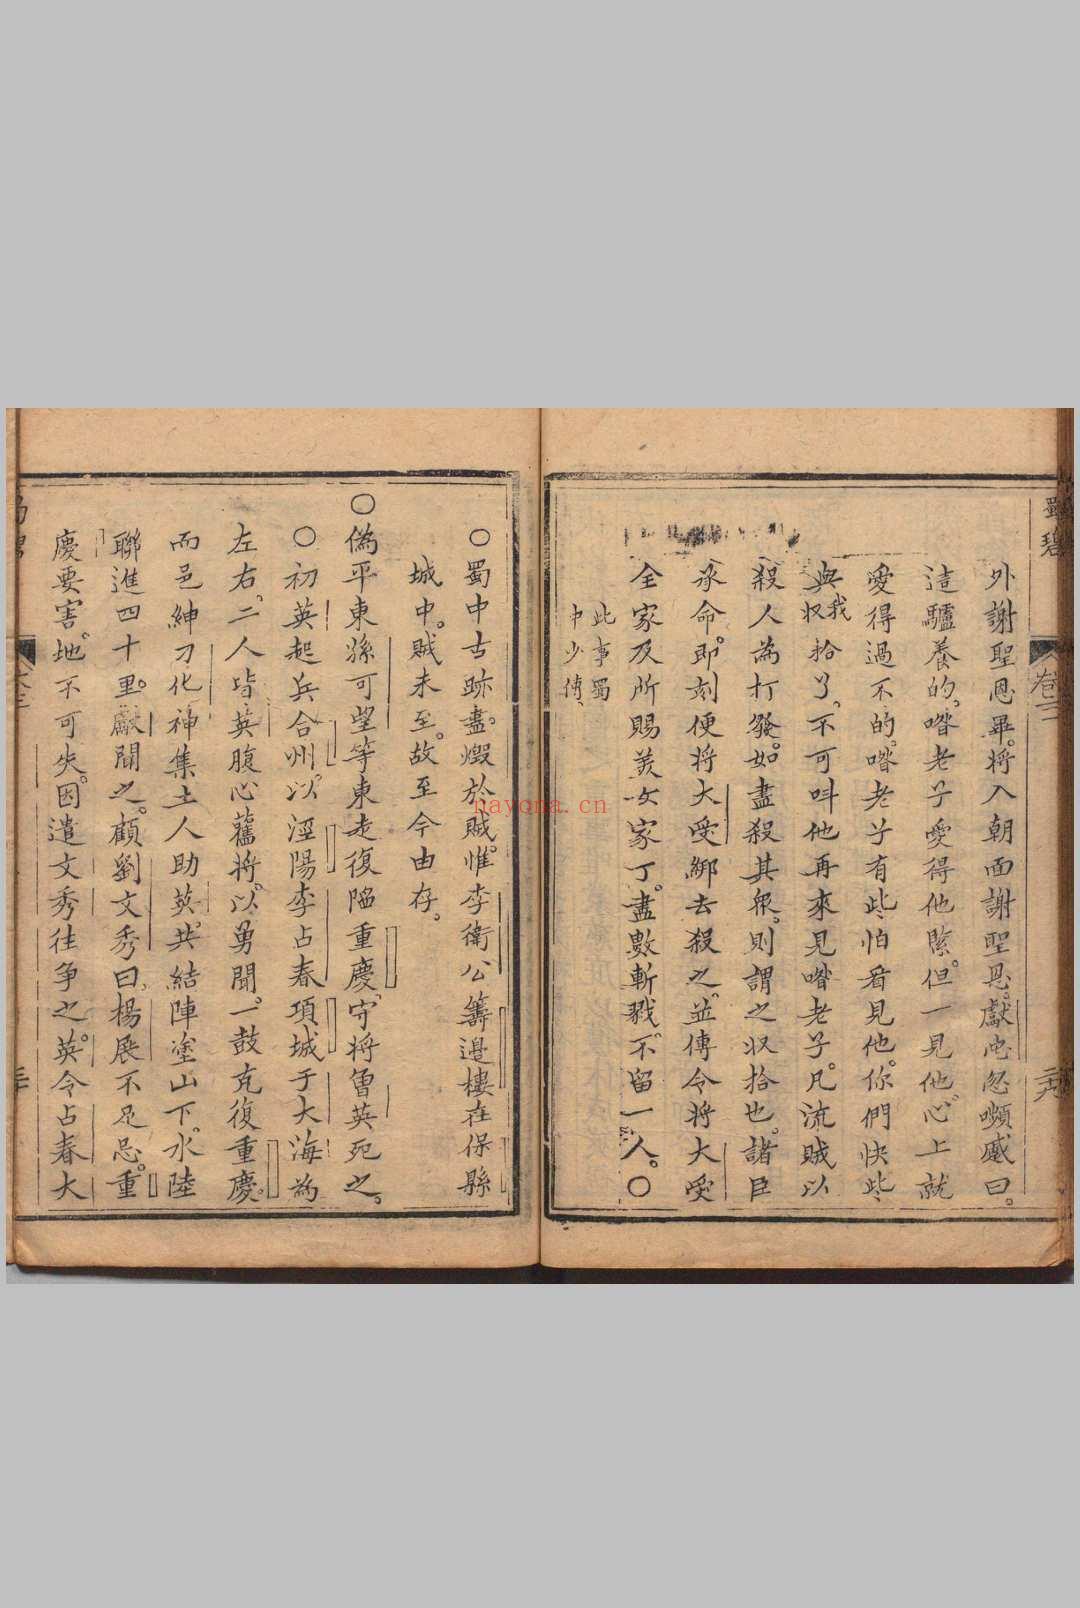 蜀碧
卷三
二十九
外謝聖恩畢。將入朝面謝聖恩。獻忠忽嚬蹙曰。
這驢養的。喒老子愛得他緊。但一見他。心上就
愛得過不的。喒老子有些怕看見他。你們快些
與我収拾了。不可呌他再來見喒老子。凡流賊以
殺人為打發。如盡殺其衆。則謂之収拾也。諸臣
承命。即刻便將大受綁去殺之。並傳令將大受
全家及所賜美女家丁。盡數斬戮。不留一人。〇
此事蜀
中少傳、
〇蜀中古跡。盡燬於賊。惟李衛公籌邊樓在保縣
城中。賊未至。故至今由存。
〇偽平東孫可望等東走復陷重慶、守將曾英死之。
〇初英起兵合州。以涇陽李占春項城于大海為
左右。二人皆英腹心舊將。以勇聞。一鼓克復重慶。
而邑紳刁化神集土人助英。共結陣塗山下。水陸
聯進四十里。獻聞之。顧劉文秀曰、楊展不足忌。重
慶要害。地不可失。因遣文秀往争之。英令占春大
nayona.cn